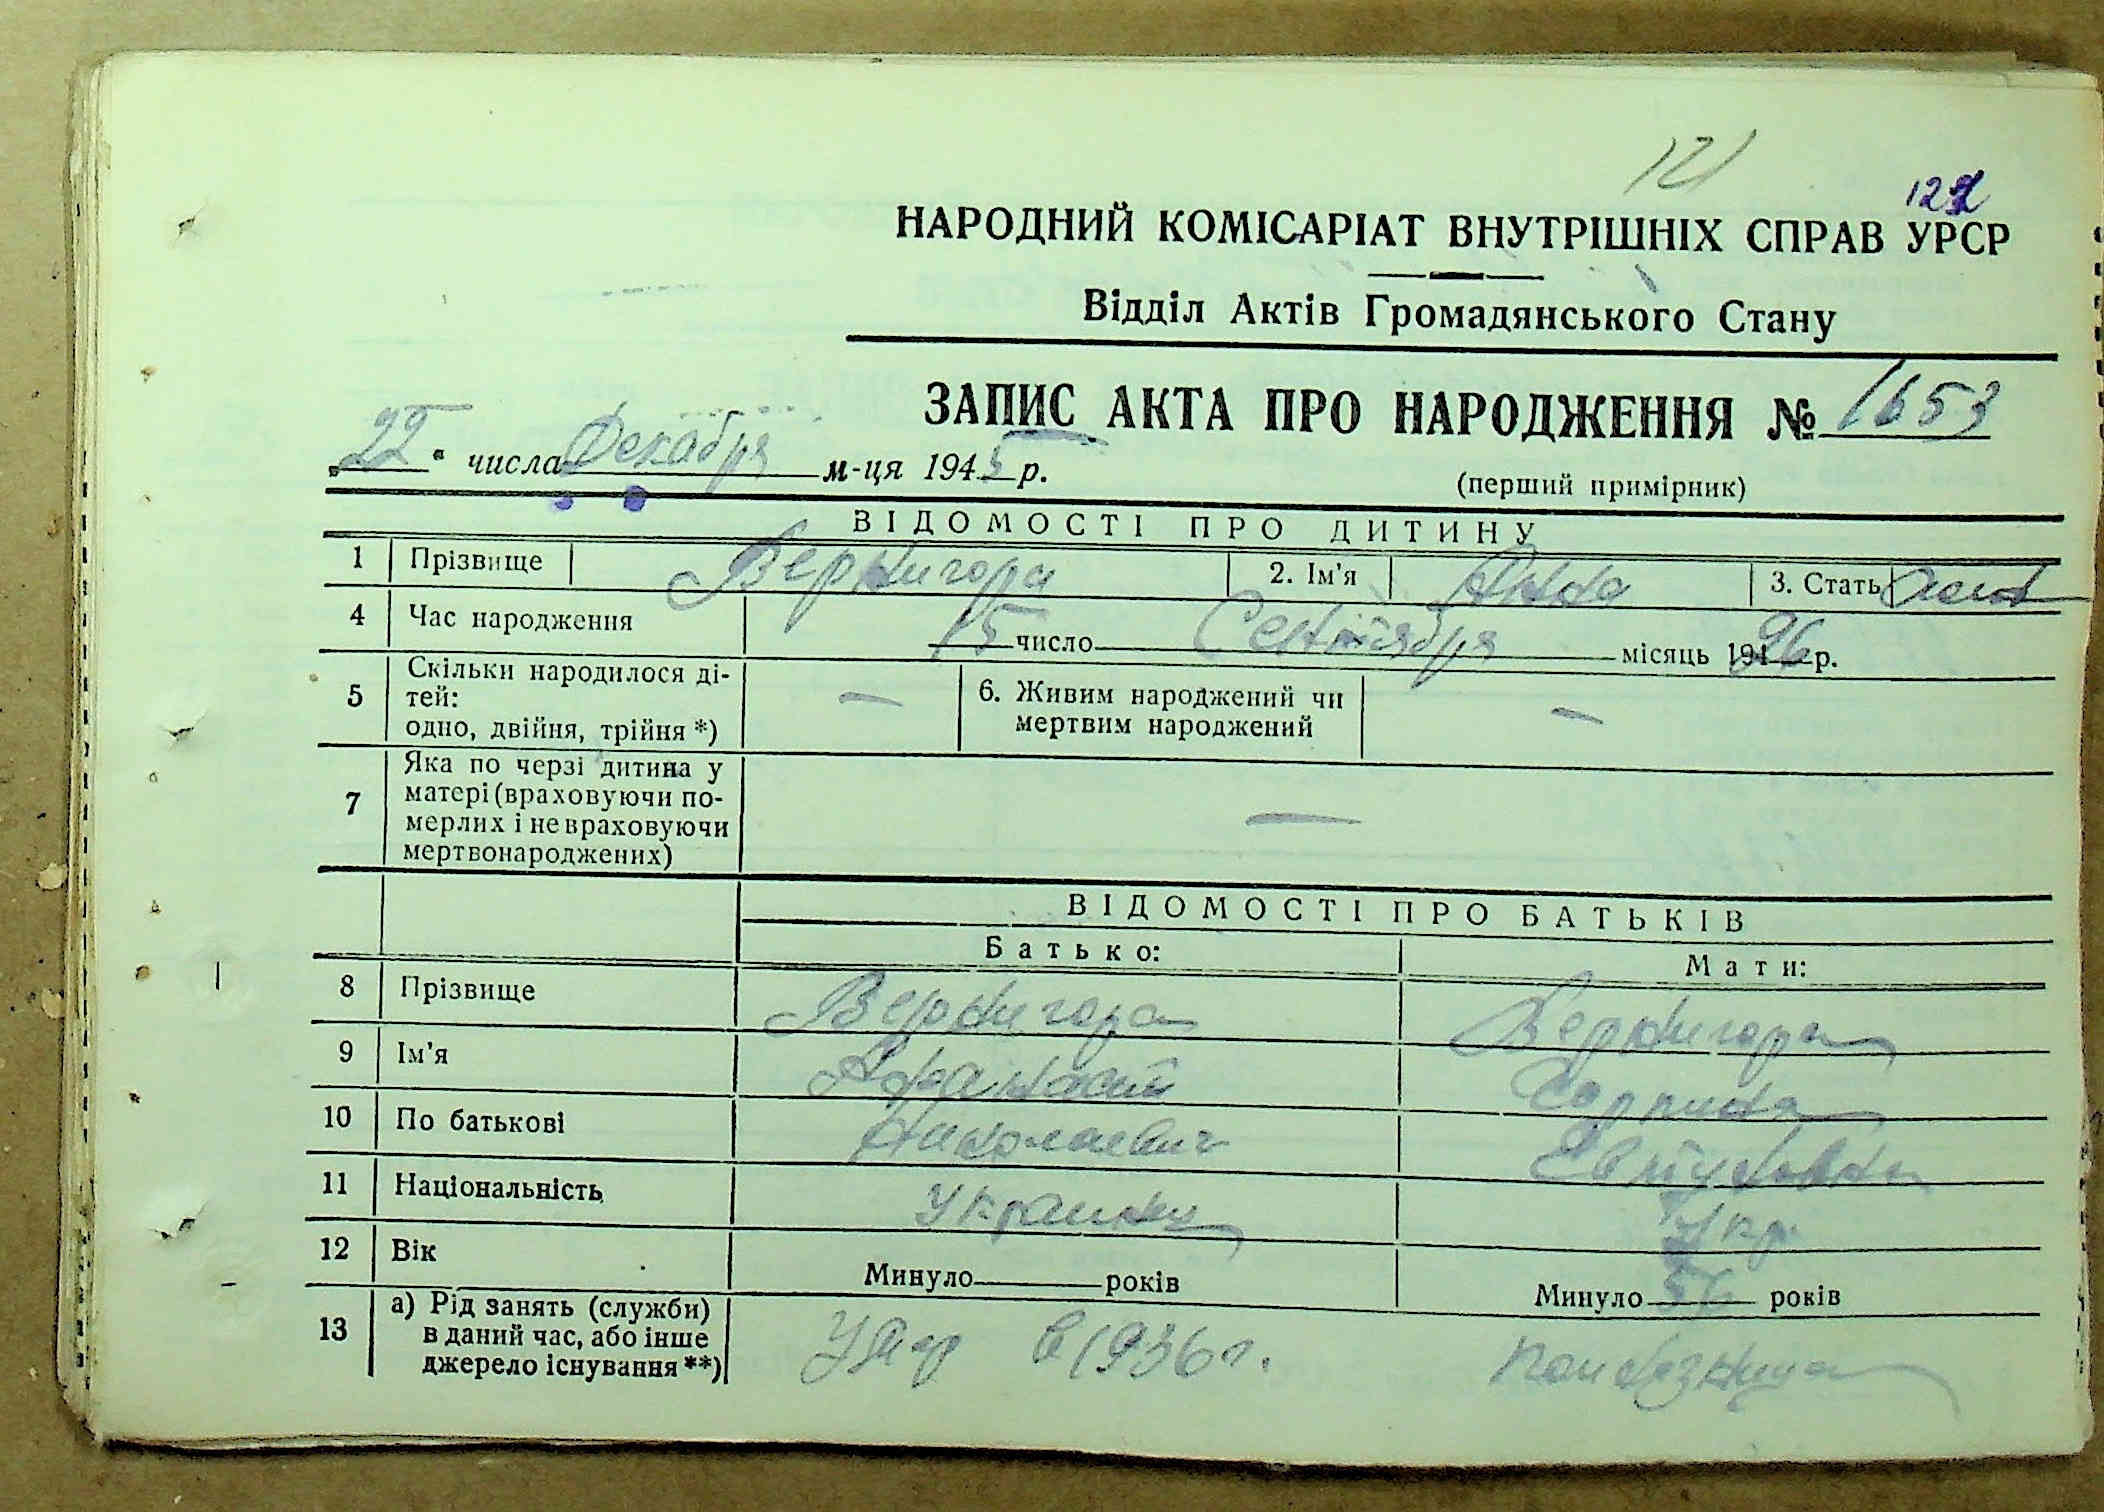 121
122
НАРОДНИЙ КОМІСАРІАТ ВНУТРІШНІХ СПРАВ УРСР
Відділ Актів Громадянського Стану
ЗАПИС АКТА ПРО НАРОДЖЕННЯ № 1653
„22“ числа Декабря м-ця 1945 р.
(перший примірник)
ВІДОМОСТІ ПРО ДИТИНУ
1 Прізвище Вернигора 2. Ім'я Анна 3. Стать
4 Час народження 15 число Сентября місяць 1926 р.
5 Скільки народилося ді-
тей:
одно, двійня, трійня *) — 6. Живим народжений чи
мертвим народжений —
7 Яка по черзі дитина у
матері (враховуючи по-
мерлих і не враховуючи
мертвонароджених) —
ВІДОМОСТІ ПРО БАТЬКІВ
Батько: Мати:
8 Прізвище Вернигора Вернигора
9 Ім'я Афанасий
10 По батькові Николаевич Евтуховна
11 Національність Украинец Укр.
12 Вік Минуло років Минуло 56 років
13 а) Рід занять (служби)
в даний час, або інше
джерело існування **) Умер в 1936 г.